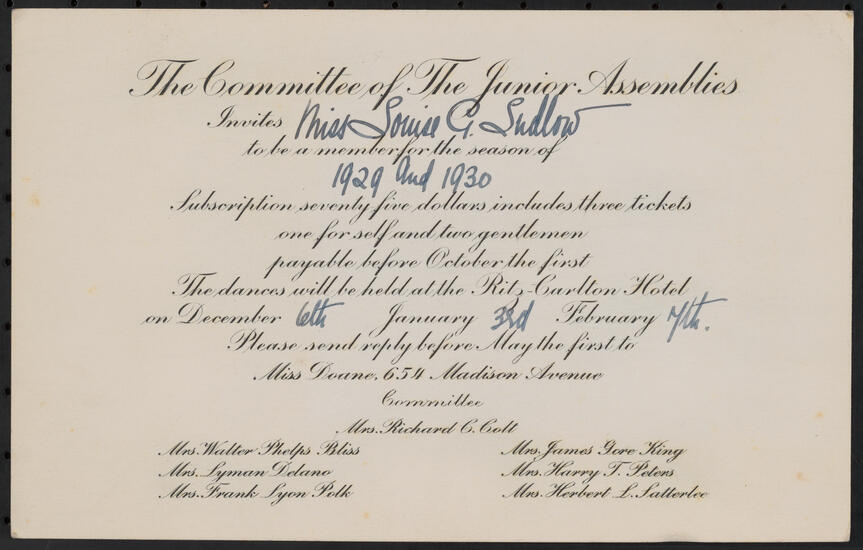 The Committee of The Junior Assemblies
Invites Miss Louise G. Ludlow
to be a member for the season of
1929 and 1930
Subscription seventy five dollars includes three tickets
one for self and two gentlemen
payable before October the first
The dances will be held at the Ritz-Carlton Hotel
on December 6th January 3rd February 7th.
Please send reply before May the first to
Miss Doane, 654 Madison Avenue
Committee
Mrs. Richard C. Colt
Mrs. Walter Phelps Bliss
Mrs. Lyman Delano
Mrs. Frank Lyon Polk
Mrs. James Gore King
Mrs. Harry T. Peters
Mrs. Herbert L. Satterlee